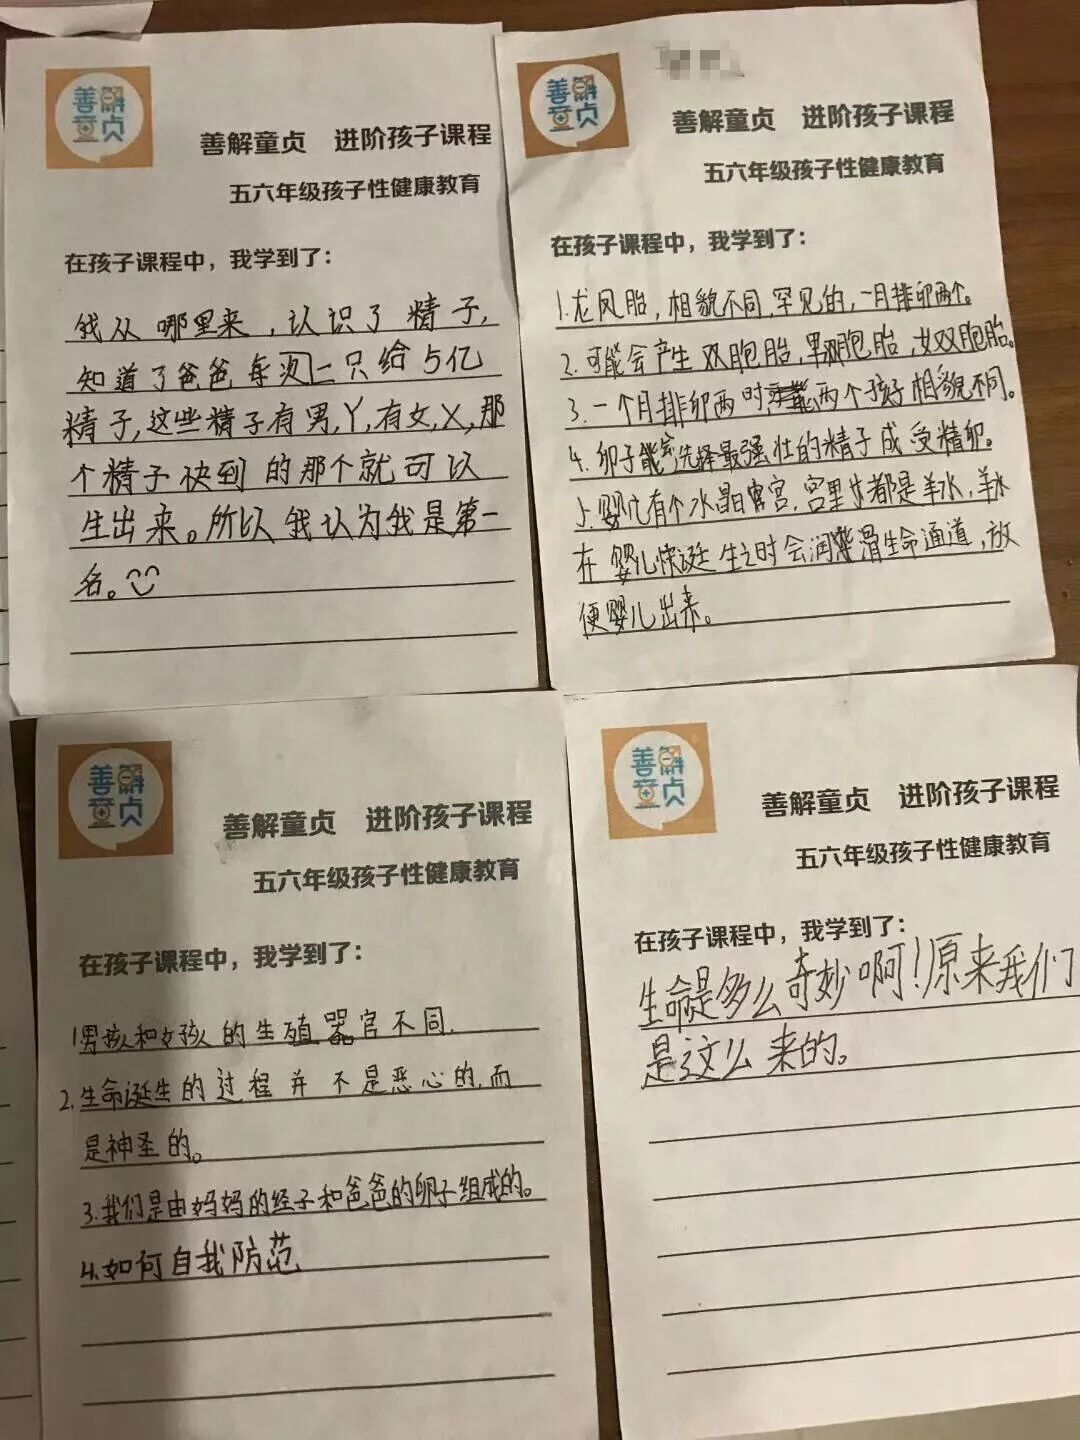 善解
童贞
善解童贞 进阶孩子课程
五六年级孩子性健康教育
在孩子课程中，我学到了：
我从哪里来，认识了精子，
知道了爸爸每次 只给5亿
精子，这些精子有男，Y，有女，X，那
个精子快到的那个就可以
生出来。所以我认为我是第一
名。
善解
童贞
善解童贞 进阶孩子课程
五六年级孩子性健康教育
在孩子课程中，我学到了：
1.龙凤胎，相貌不同，罕见的，一月排卵两个。
2.可能会产生双胞胎，男双胞胎，女双胞胎。
3.一个月排卵两时，两个孩好相貌不同。
4.卵子能会选择最强壮的精子成受精卵。
5.婴儿有个水晶宫，宫里 都是羊水，羊水
在婴儿快诞生之时会润滑生命通道，放
便婴儿出来。
善解
童贞
善解童贞 进阶孩子课程
五六年级孩子性健康教育
在孩子课程中，我学到了：
1男孩和女孩的生殖器官不同.
2.生命诞生的过程并不是恶心的.而
是神圣的。
3.我们是由妈妈的经子和爸爸的卵子组成的。
4.如何自我防范
善解
童贞
善解童贞 进阶孩子课程
五六年级孩子性健康教育
在孩子课程中，我学到了：
生命是多么奇妙啊！原来我们
是这么来的。